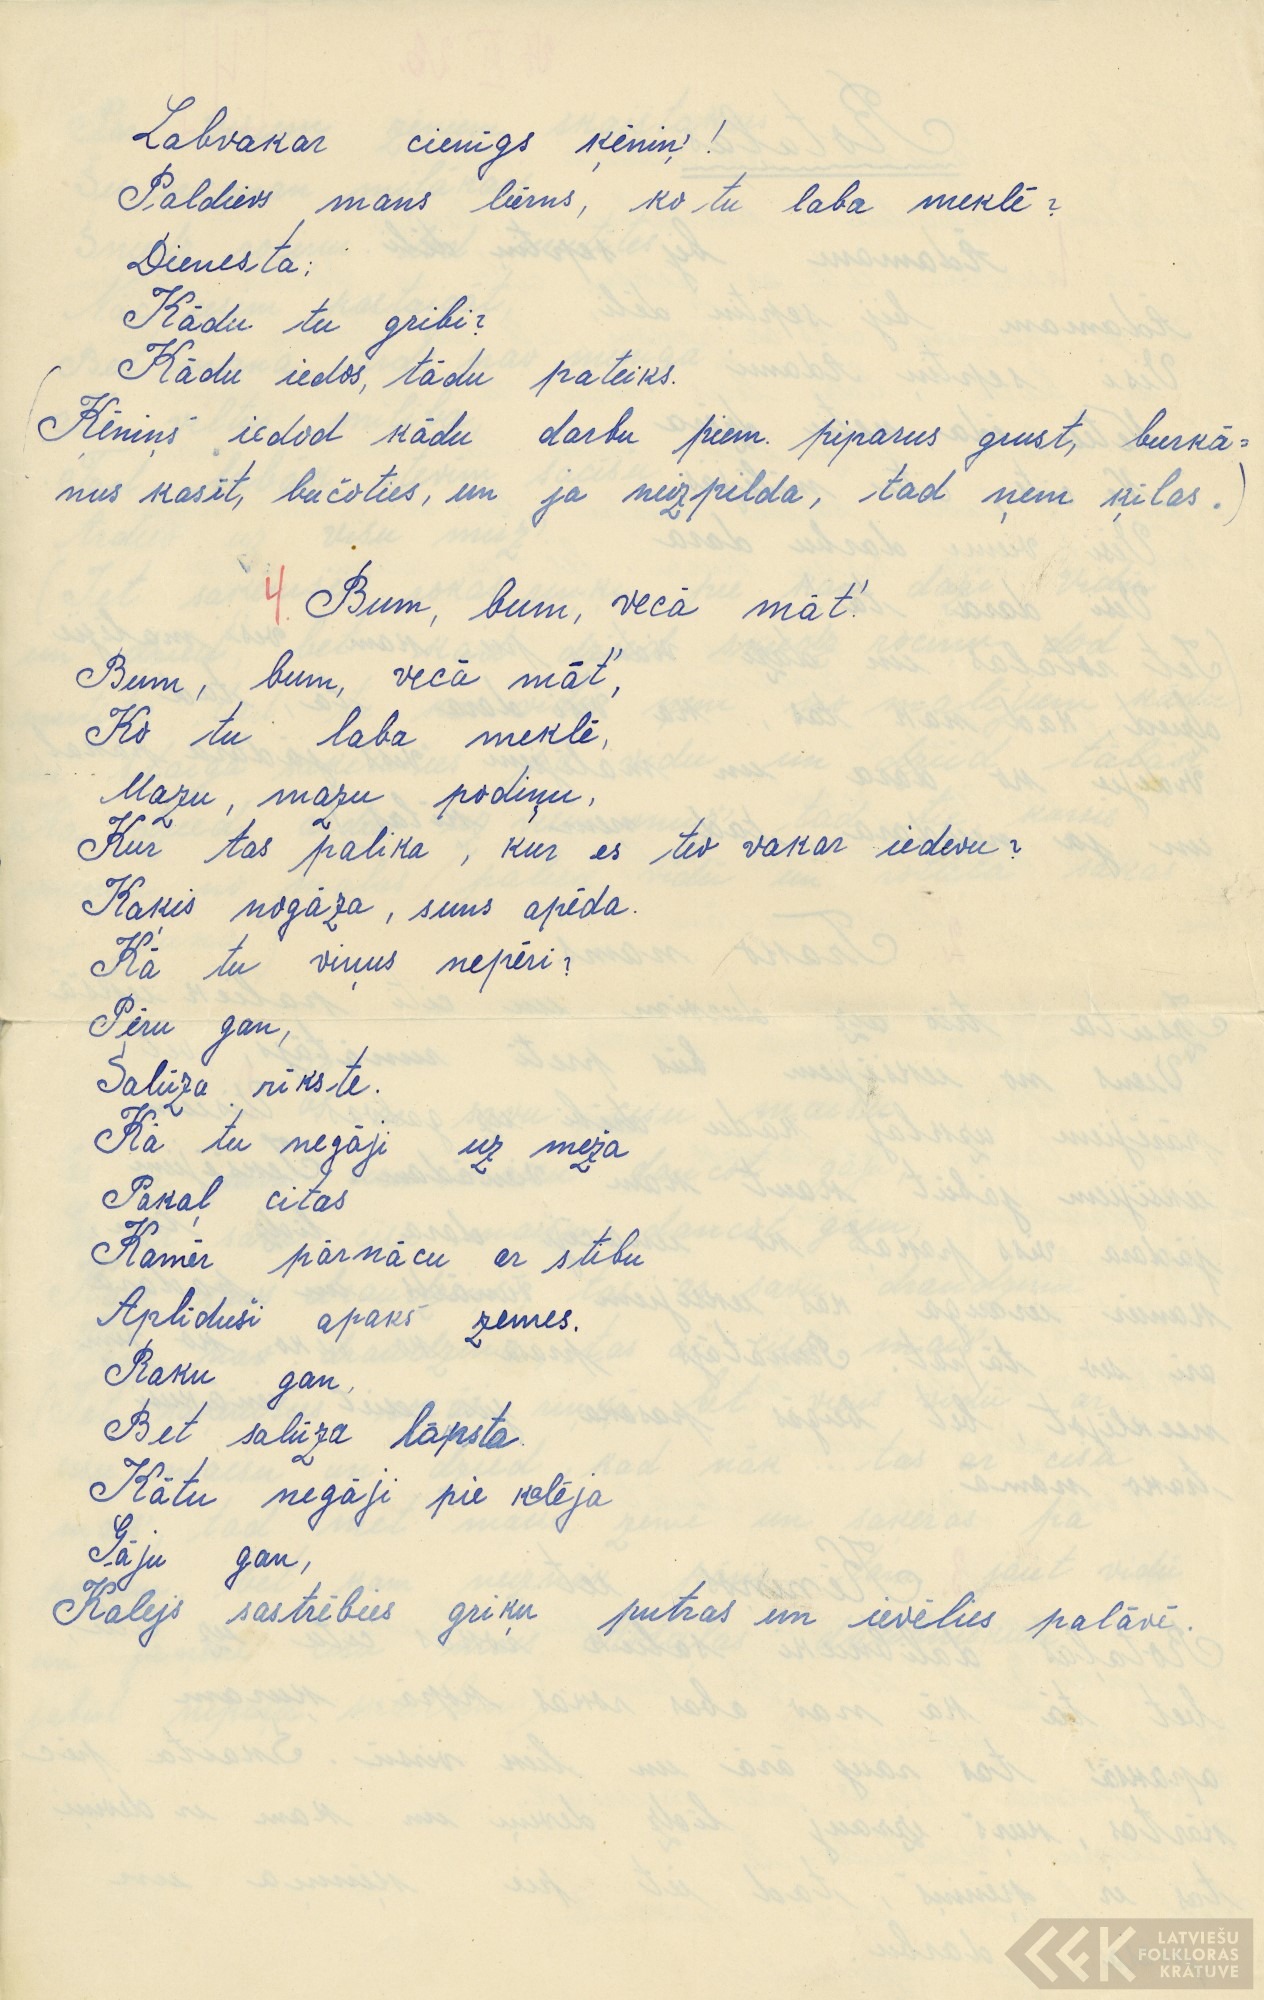 Labvakar cienīgs ķēniņ!
Paldievs mans bērns, ko tu laba meklē?
Dienesta;
Kādu tu gribi?
Kādu iedos, tādu pateiks.
(Ķēniņš iedod kādu darbu piem. piparus grust, burkā=
nus kasīt, bučoties, un ja neizpilda, tad ņem ķīlas.)
4. Bum, bum, vecā māt'!
Bum, bum, vecā māt',
Ko tu laba meklē,
Mazu, mazu podiņu,
Kur tas palika, kur es tev vakar iedevu?
Kaķis nogāza, suns apēda.
Kā tu viņus nepēri?
Pēru gan,
Salūza rīkste.
Kā tu negāji uz meža
Pakaļ citas
Kamēr pārnācu ar stibu
Aplīduši apakš zemes.
Raku gan,
Bet salūza lāpsta.
Kātu negāji pie kalēja
Gāju gan,
Kalējs sastrēbies griķu putras un ievēlies palāvē.
LATVIEŠU
FOLKLORAS
KRĀTUVE